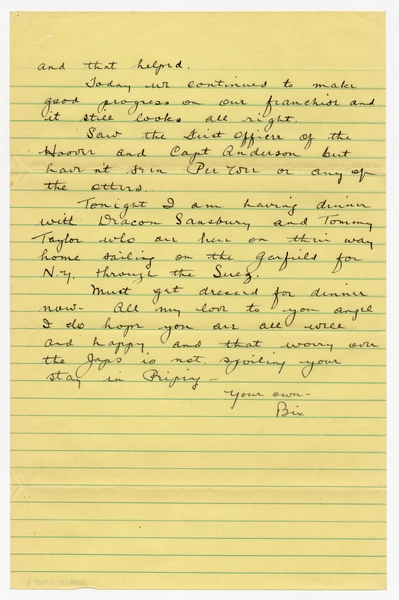 and that helped.
Today we continued to make
good progress on our franchise and
it still looks all right.
Saw the First Officer of the
Hoover and Capt Anderson but
haven't seen or any of
the others.
Tonight I am having dinner
with Deacon Sansbury and Tommy
Taylor who are here on their way
home sailing on the Garfield for
N.Y. through the Suez.
Must get dressed for dinner
now - All my love to you angel
I do hope you are all well
and happy and that worry over
the Japs is not spoiling your
stay in Peiping -
Your own -
Bix